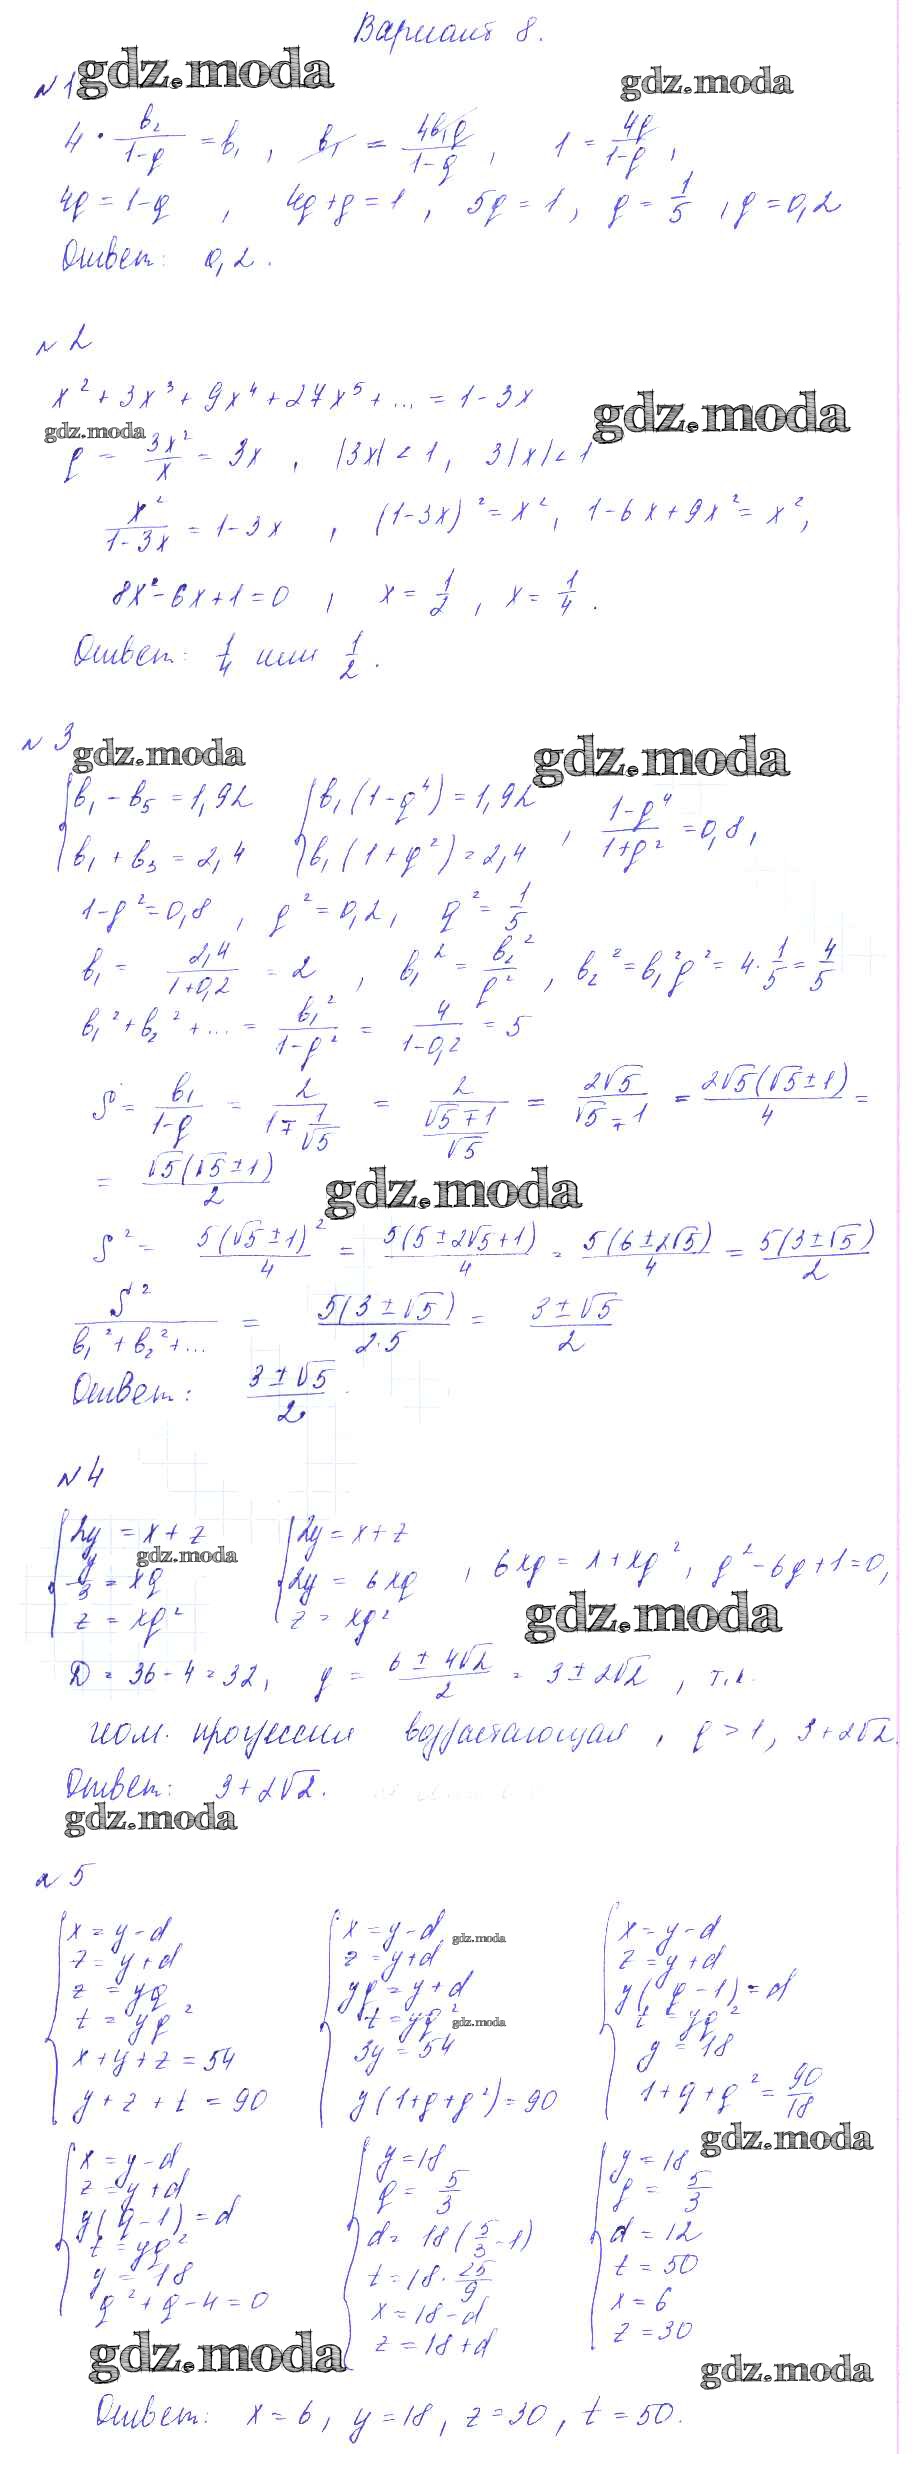 Вариант 8.
№1 gdz.moda gdz.moda
4 · b₂/(1-q) = b₁ , b₁ = 4b₁q/(1-q) , 1 = 4q/(1-q) ,
4q = 1-q , 4q+q = 1 , 5q = 1 , q = 1/5 , q = 0,2
Ответ: 0,2.
№2
x² + 3x³ + 9x⁴ + 27x⁵ + ... = 1-3x
gdz.moda gdz.moda
q = 3x²/x = 3x , |3x| < 1 , 3|x| < 1
x²/(1-3x) = 1-3x , (1-3x)² = x² , 1-6x+9x² = x² ,
8x²-6x+1=0 , x = 1/2 , x = 1/4 .
Ответ: 1/4 или 1/2 .
№3 gdz.moda gdz.moda
{ b₁ - b₅ = 1,92 { b₁(1-q⁴) = 1,92
b₁ + b₃ = 2,4 b₁(1+q²) = 2,4 , (1-q⁴)/(1+q²) = 0,8 ,
1-q² = 0,8 , q² = 0,2 , q² = 1/5
b₁ = 2,4/(1+0,2) = 2 , b₁² = b₂²/q² , b₂² = b₁²q² = 4 · 1/5 = 4/5
b₁² + b₂² + ... = b₁²/(1-q²) = 4/(1-0,2) = 5
S = b₁/(1-q) = 2/(1∓1/√5) = 2/((√5∓1)/√5) = 2√5/(√5∓1) = 2√5(√5±1)/4 =
= √5(√5±1)/2
gdz.moda
S² = 5(√5±1)²/4 = 5(5±2√5+1)/4 = 5(6±2√5)/4 = 5(3±√5)/2
S²/(b₁²+b₂²+...) = 5(3±√5)/(2·5) = (3±√5)/2
Ответ: (3±√5)/2 .
№4
{ 2y = x+z { 2y = x+z
y/3 = xq gdz.moda 2y = 6xq , 6xq = x+xq² , q²-6q+1=0,
z = xq² z = xq² gdz.moda
D = 36-4 = 32 , q = (6±4√2)/2 = 3±2√2 , т.к.
геом. прогрессия возрастающая , q > 1 , 3+2√2
Ответ: 3+2√2 .
gdz.moda
№5
{ x = y-d { x = y-d gdz.moda { x = y-d
z = y+d z = y+d z = y+d
z = yq yq = y+d y(q-1) = d
t = yq² t = yq² gdz.moda t = yq²
x+y+z = 54 3y = 54 y = 18
y+z+t = 90 y(1+q+q²) = 90 1+q+q² = 90/18
gdz.moda
{ x = y-d { y = 18 { y = 18
z = y+d q = 5/3 q = 5/3
y(q-1) = d d = 18(5/3-1) d = 12
t = yq² t = 18·25/9 t = 50
y = 18 x = 18-d x = 6
q²+q-4=0 z = 18+d z = 30
gdz.moda gdz.moda
Ответ: x = 6 , y = 18 , z = 30 , t = 50.